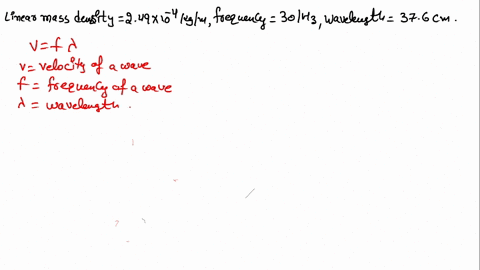 Linear mass density = 2.49×10⁻⁴ kg/m, frequency = 301Hz, wavelength = 37.6 cm.
v = f λ
v = velocity of a wave
f = frequency of a wave
λ = wavelength.